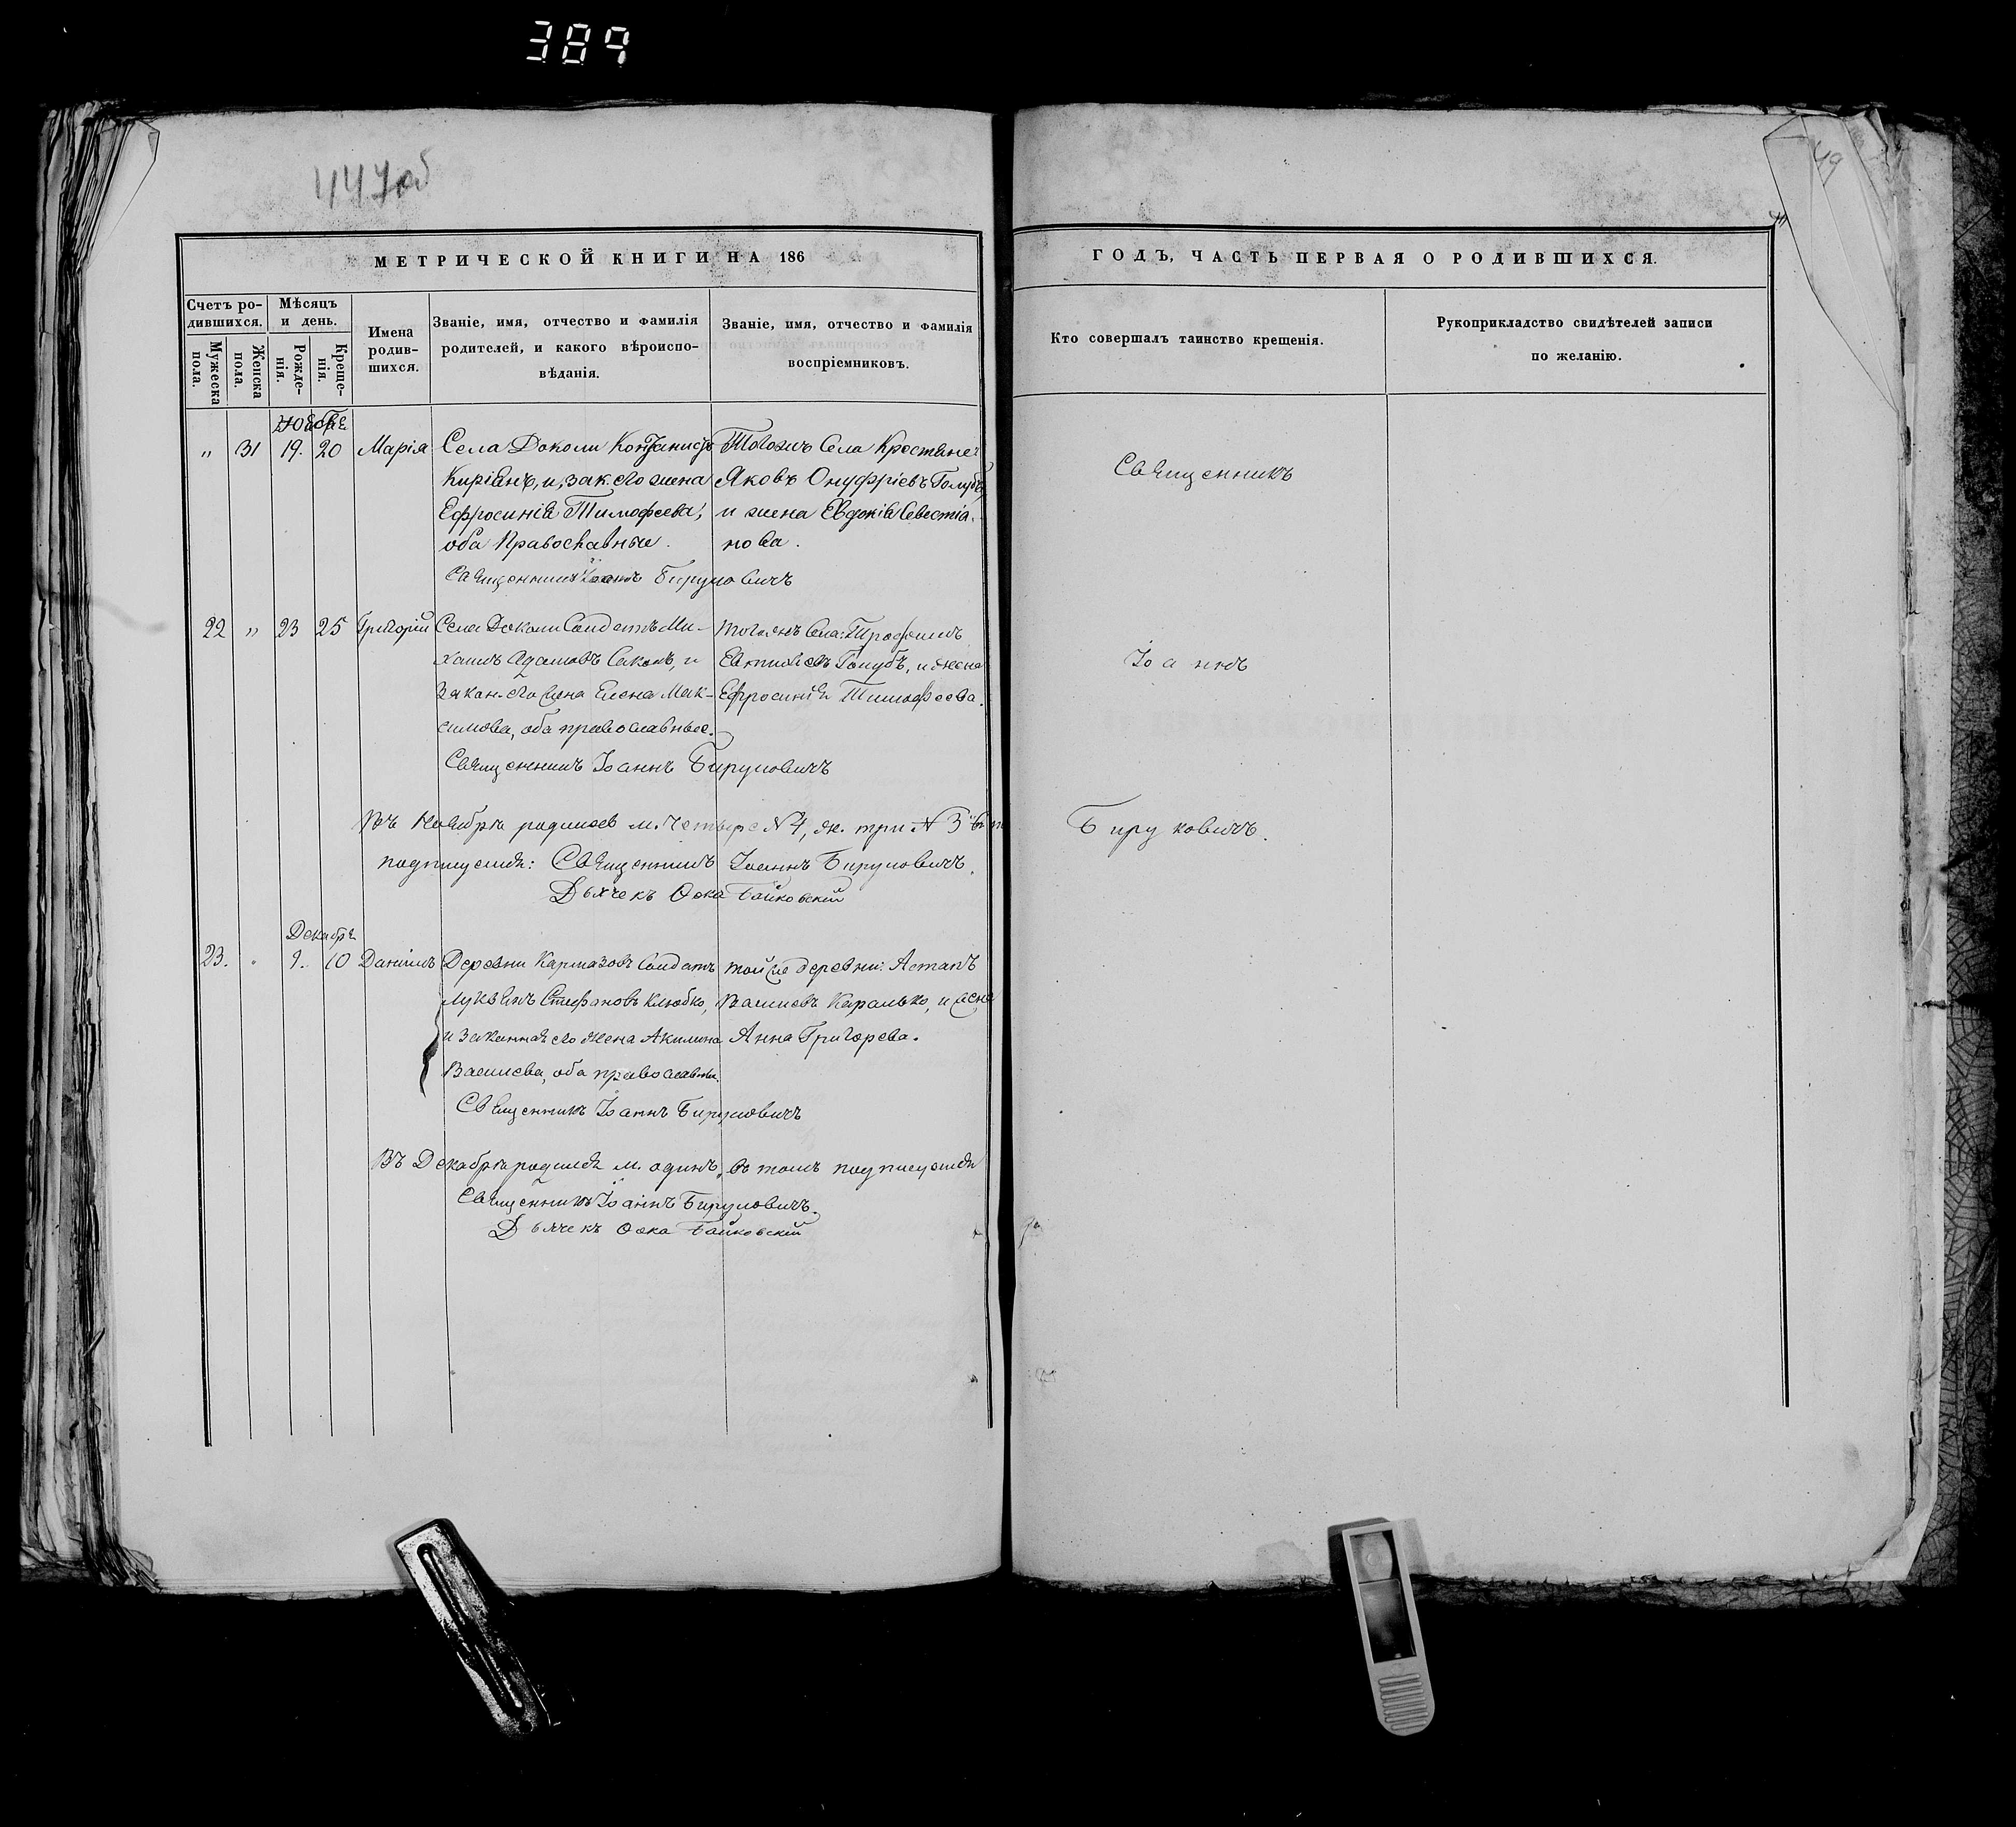 389
447об
49
МЕТРИЧЕСКОЙ КНИГИ НА 186
ГОДЪ, ЧАСТЬ ПЕРВАЯ О РОДИВШИХСЯ.
Счетъ ро-
дившихся.
Мужеска
пола.
Женска
пола.
Мѣсяцъ
и день.
Рожде-
нія.
Креще-
нія.
Имена
родив-
шихся.
Званіе, имя, отчество и фамилія
родителей, и какого вѣроиспо-
вѣданія.
Званіе, имя, отчество и фамилія
воспріемниковъ.
Кто совершалъ таинство крещенія.
Рукоприкладство свидѣтелей записи
по желанію.
Ноября
„ 31 19. 20 Марія Села Доколи
и, зак. его жена
Ефросинія Тимофеева,
оба Православные.
Тогожъ Села
Яковъ Онуфріевъ Голубъ
и жена Евдокія Севестіа-
нова.
Священникъ Іоаннъ Бируковичъ
Священникъ
22 „ 23 25 Григорій Села Доколи Солдатъ Ми-
хаилъ Адамовъ и
закон. его жена Елена Мак-
симова, оба православные.
тогожъ Села: Трофимъ
Голубъ, и жена
Ефросинія Тимофеева.
Священникъ Іоаннъ Бируковичъ
Іоаннъ
Въ Ноябрѣ родилось м. четыре №4, ж. три № 3 въ
подписуемся: Священникъ Іоаннъ Бируковичъ.
Дьячекъ Ѳока Байковскій
Бируковичъ.
Декабря
23. „ 9. 10 Даніилъ Деревни Солдатъ
Стефановъ Клюбко,
и законная его жена Акилина
Васильева, оба православны.
той же деревни: Астапъ
Васильевъ Каралько, и жена
Анна Григорьева.
Священникъ Іоаннъ Бируковичъ
Въ Декабрѣ родился м. одинъ, въ томъ подписуемся
Священникъ Іоаннъ Бируковичъ.
Дьячекъ Ѳока Байковскій